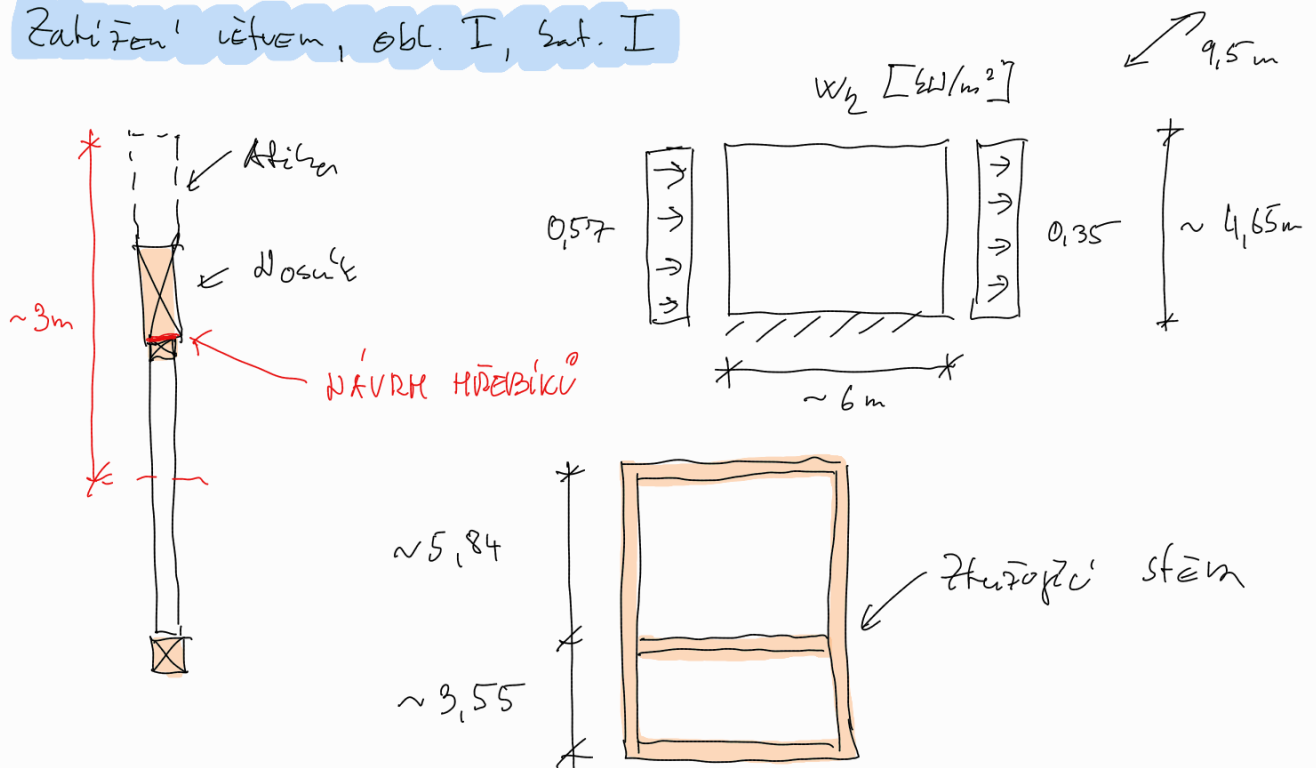 Zatížení větvem, obl. I, kat. I
9,5 m
Wk [kN/m²]
Atika
Nosník
~3m
NÁVRH HŘEBÍKŮ
0,57
0,35
~ 4,65m
~ 6 m
~5,84
Ztužující stěna
~3,55